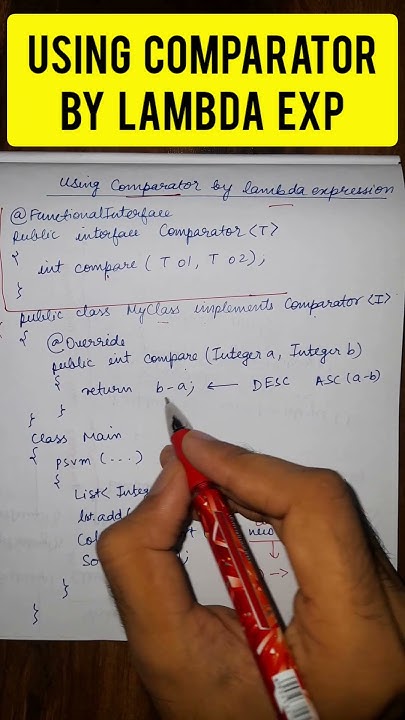 USING COMPARATOR
BY LAMBDA EXP
Using Comparator by lambda expression
@FunctionalInterface
public interface Comparator<T>
{
int compare ( T o1, T o2);
}
public class MyClass implements Comparator<I>
{ @Override
public int compare (Integer a, Integer b)
{ return b-a; ← DESC ASC (a-b)
}
}
Class Main
{ psvm (...)
{
List< Integ
list.add(
Col
new
So ;
}
}